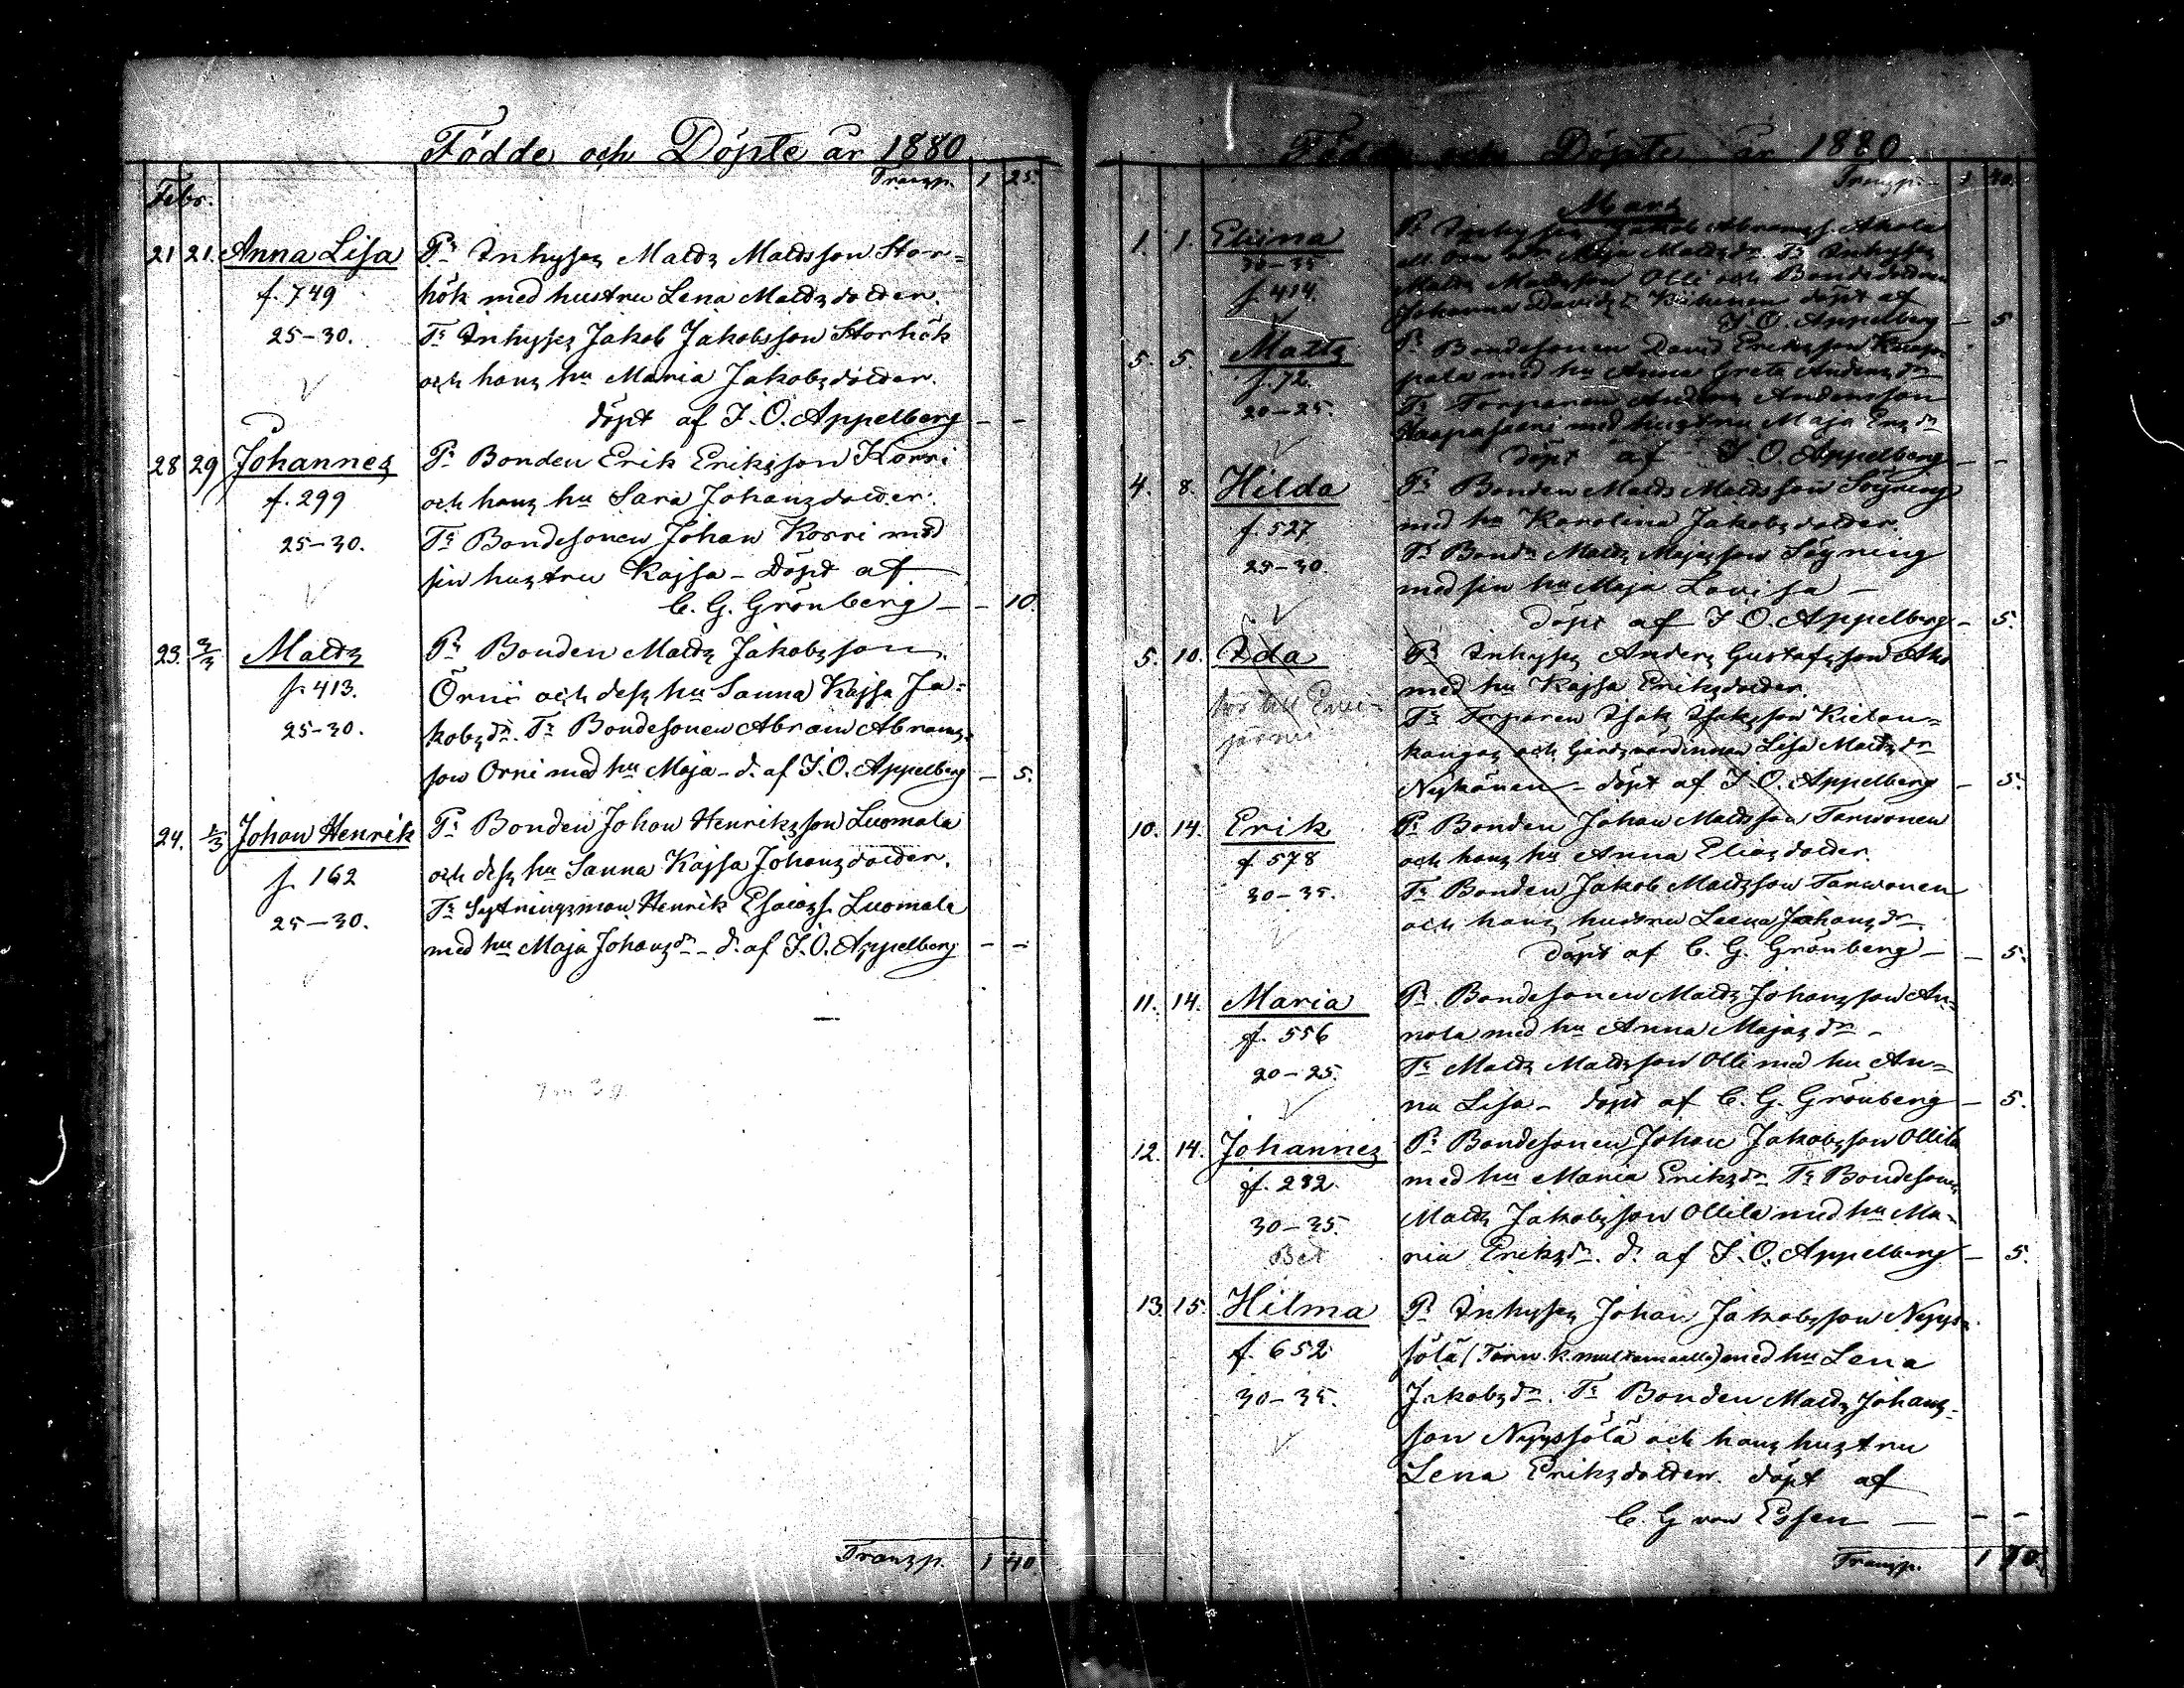 Födde och Döpte år 1880
Transp. 1 25.
Febr.
21 21. Anna Lisa Prs Inhyses Matts Mattsson Stor-
f. 749 hök med hustru Lena Mattsdotter.
25-30. Ts Inhyses Jakob Jakobsson Storhök
och hans hu Maria Jakobsdotter.
döpt af J. O. Appelberg - -
28 29 Johannes Prs Bonden Erik Eriksson Korri
f. 299 och hans hu Sara Johansdotter.
25-30. Ts Bondesonen Johan Korri med
sin hustru Kajsa - döpt af
C. G. Grönberg - - 10.
23. 2/3 Matts Prs Bonden Matts Jakobsson
f. 413. Örni och dess hu Sanna Kajsa Ja-
25-30. kobsdr. Ts Bondesonen Abram Abrams-
son Örni med hu Maja - d. af J. O. Appelberg - 5.
24. 2/3 Johan Henrik Prs Bonden Johan Henriksson Luomala
f. 162 och dess hu Sanna Kajsa Johansdotter.
25-30. Ts Sytningsman Henrik Esaiass. Luomala
med hu Maja Johansdr - d. af J. O. Appelberg - -
Transp. 1 40
Födde och Döpte år 1880
Transp. 1 40.
Mars
1. 1. Eliina Prs Inhyses Jakob Abramss. Ahola
30-35 Maja Mattsdr. Ts Inhyses
f. 414. Matts Mattsson Olli och Bondedottren
Johanna Davidsdr döpt af
J. O. Appelberg - 5
5. 5. Matts Prs Bondesonen David Eriksson
f. 72. med hu Anna Greta Andersdr
20-25. Ts Torparen Anders Andersson
med hustru Maja Ersdr
döpt af J. O. Appelberg - -
4. 8. Hilda Prs Bonden Matts Mattsson Söyring
f. 527 med hu Karolina Jakobsdotter.
25-30. Ts Bond. Matts Majasson Söyring
med sin hu Maja Lovisa -
döpt af J. O. Appelberg - 5.
5. 10. Ida Prs Inhyses Anders Gustafsson Aho
med hu Kajsa Eriksdotter.
Ts Torparen Isak Isaksson Kietau-
kangas och Gårdsvärdinnan Lisa Mattsdr
Nykänen - döpt af J. O. Appelberg - 5.
10. 14. Erik Prs Bonden Johan Mattsson Tarvonen
f. 578 och hans hu Anna Eliasdotter.
30-35. Ts Bonden Jakob Mattsson Tarvonen
och hans hustru Leena Johansdr.
döpt af C. G. Grönberg - - 5.
11. 14. Maria Prs Bondesonen Matts Johansson An-
f. 556 nola med hu Anna Majasdr -
20-25. Ts Matts Mattsson Olli med hu An-
na Lisa - döpt af C. G. Grönberg - 5.
12. 14. Johannes Prs Bondesonen Johan Jakobsson Ollila
f. 232. med hu Maria Eriksdr Ts Bondesonen
30-35. Matts Jakobsson Ollila med hu Ma-
Bet ria Eriksdr. d. af J. O. Appelberg - 5.
13. 15. Hilma Prs Inhyses Johan Jakobsson Nyys-
f. 652 sölä med hu Lena
30-35. Jakobsdr. Ts Bonden Matts Johans-
son Nyyssölä och hans hustru
Lena Eriksdotter. döpt af
C. G von Essen - - -
Transp. 1 70.